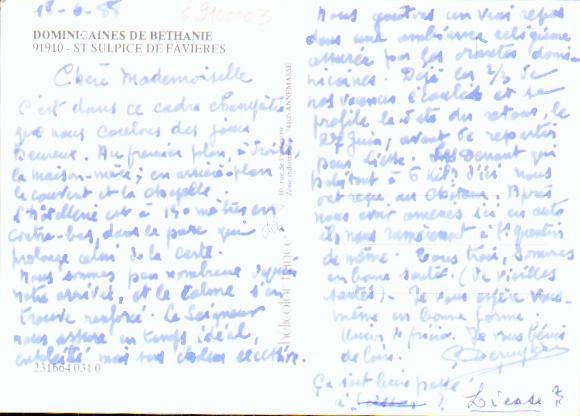 18-6-85
DOMINICAINES DE BETHANIE
91910 - ST SULPICE DE FAVIERES
Chère Mademoiselle
C'est dans ce cadre champêtre
que nous coulons des jours
heureux. Au premier plan, à droite,
la maison-mère; en arrière-plan
le couvent et la chapelle.
L'hôtellerie est à 150 mètres en
contre-bas, dans le parc qui
prolonge celui de la carte.
Nous sommes peu nombreux depuis
notre arrivée, et le calme s'en
trouve renforcé. Le Seigneur
nous assure un temps idéal,
ensoleillé mais sans chaleur excessive.
231664 031 0
helicolor france
Zone industrielle 74105 ANNEMASSE
Nous goûtons un vrai repos
dans une ambiance religieuse
assurée par les orantes domi-
nicaines. Déjà les 2/3 de
nos vacances écoulés et se
profile la date du retour, le
27 juin, avant de repartir
pour Liesse. qui
à 6 km d'ici nous
ont reçus au. Après
nous avoir amenés ici en auto
ils nous ramèneront à
de même. Tous trois, sommes
en bonne santé. (de vieilles
santés) - Je vous espère vous-
même en bonne forme.
Je vous bénis
de loin.
Ça s'est bien passé
à ? Liesse ?